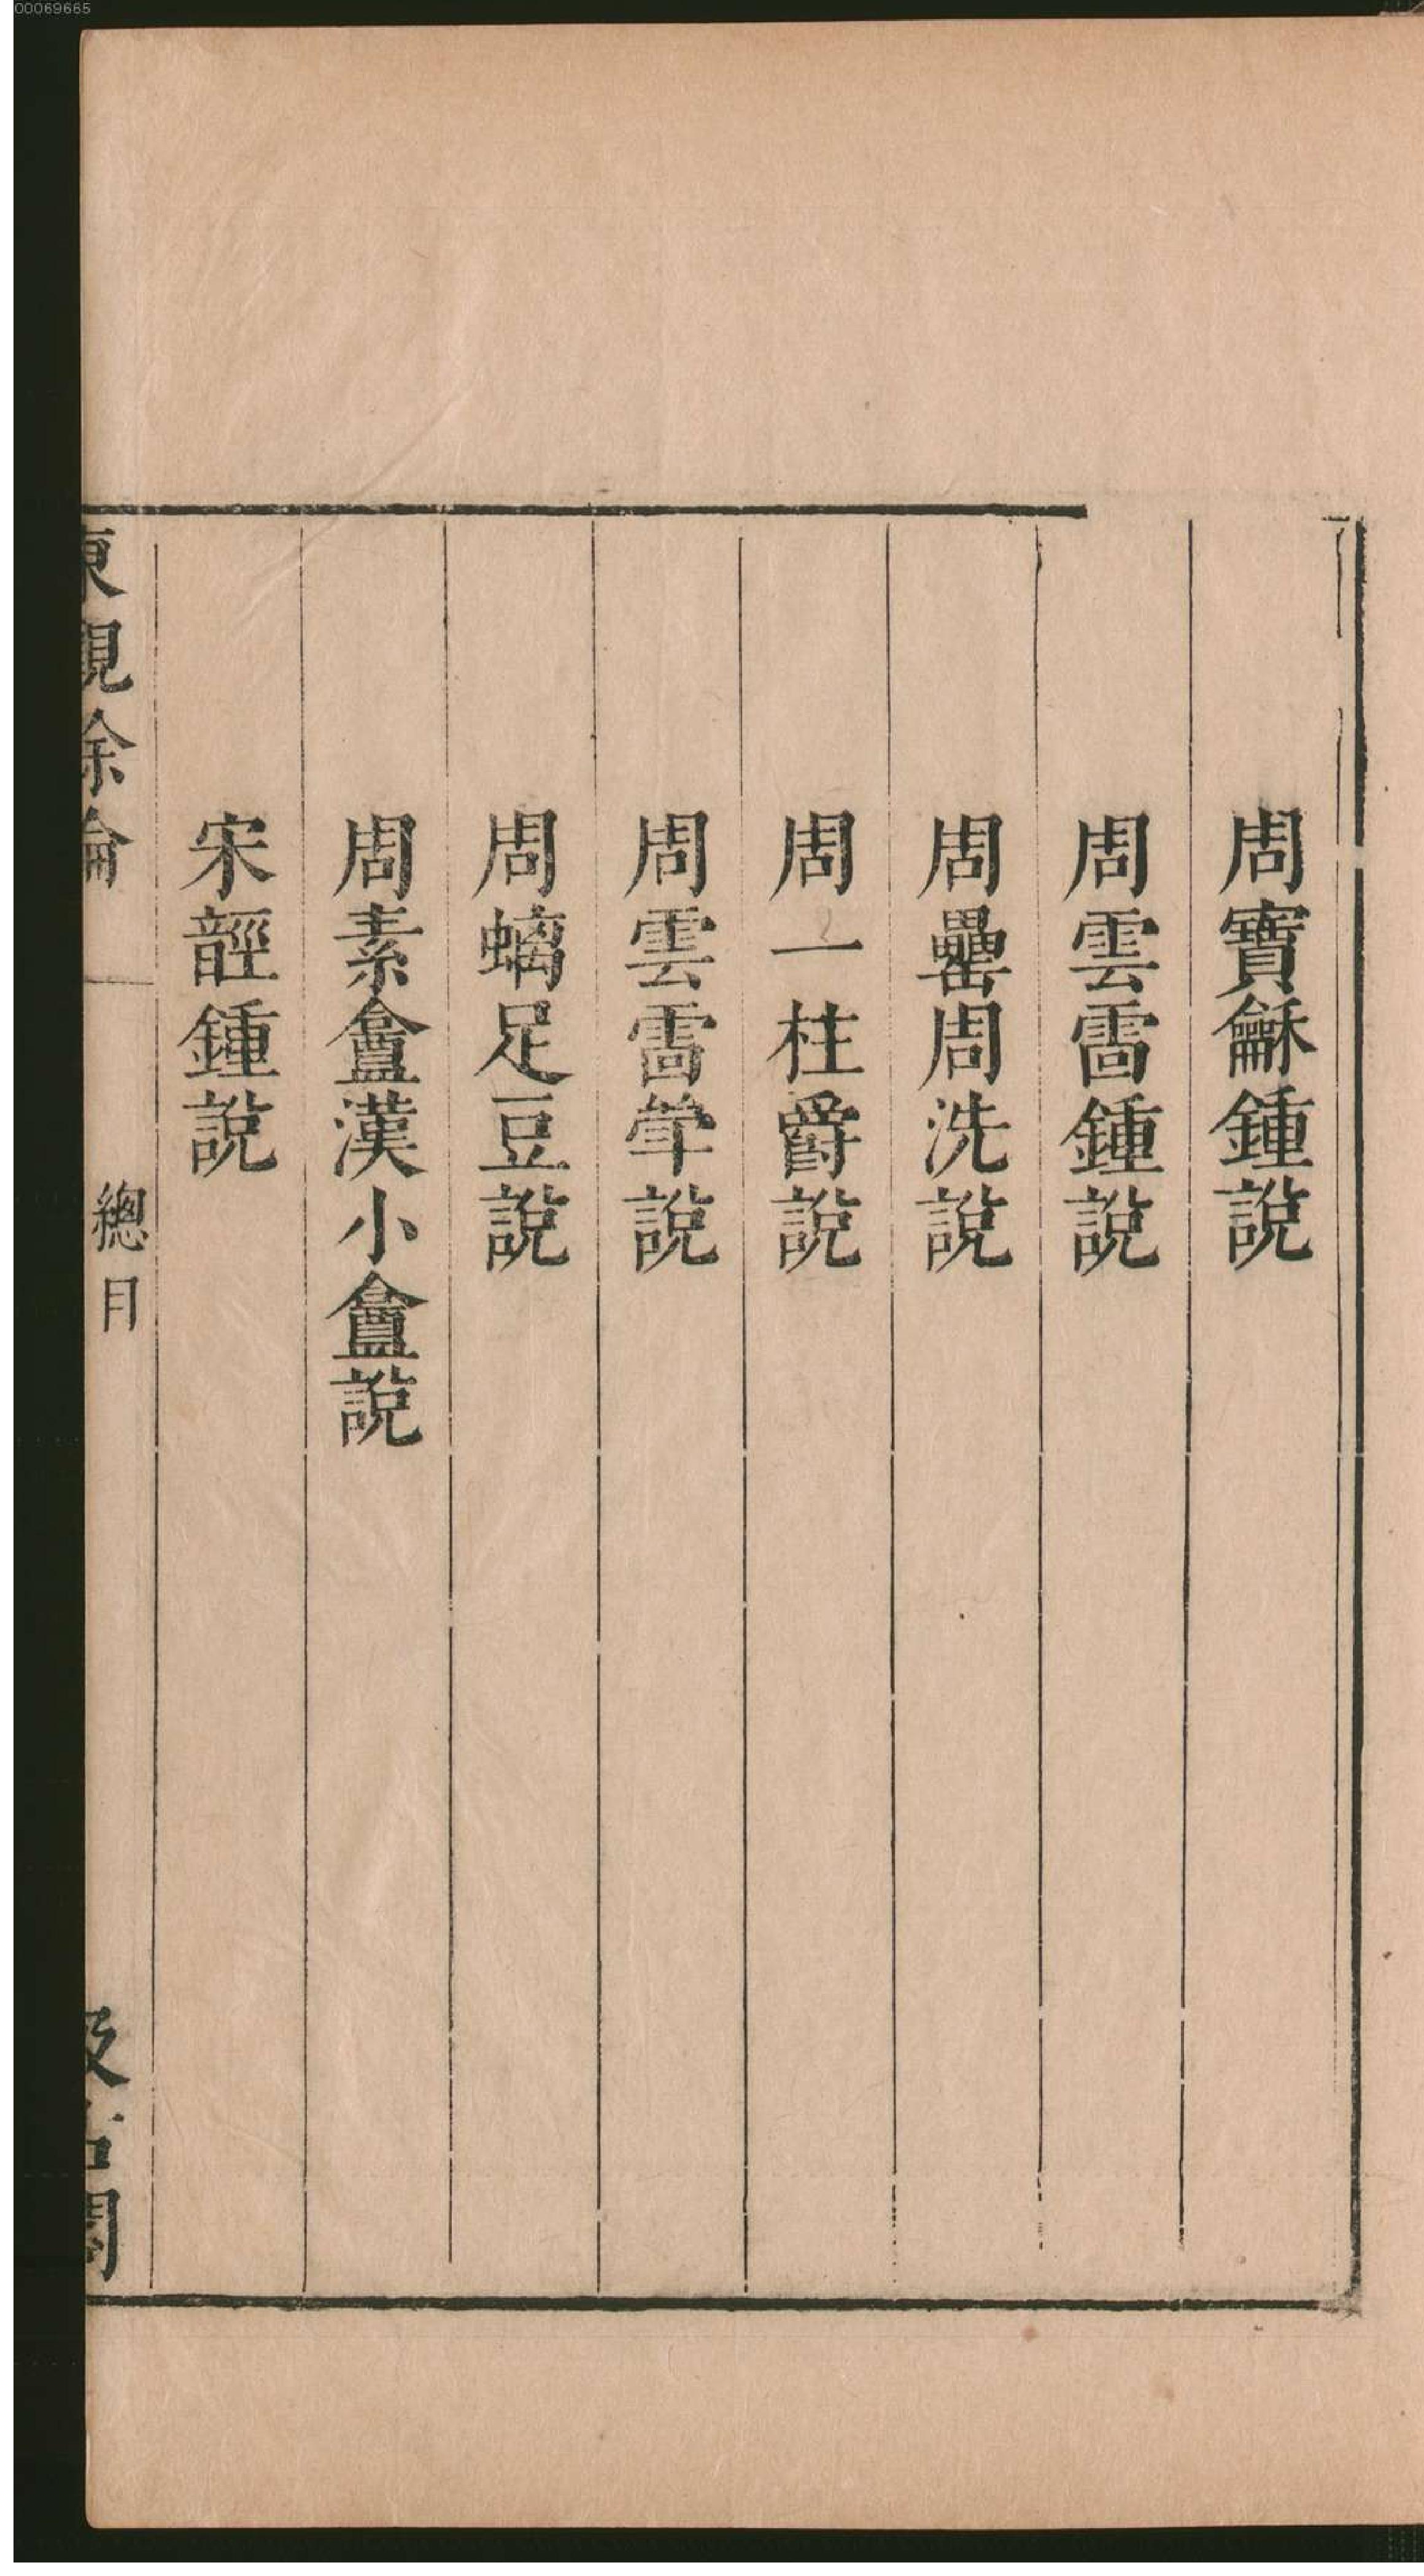 00069665
周寶龢鍾說
周雲雷鍾說
周罍周洗說
周一柱爵說
周雲雷斝說
周螭足豆說
周素盦漢小盦說
宋䪫鍾說
東觀餘論
總目
汲古閣